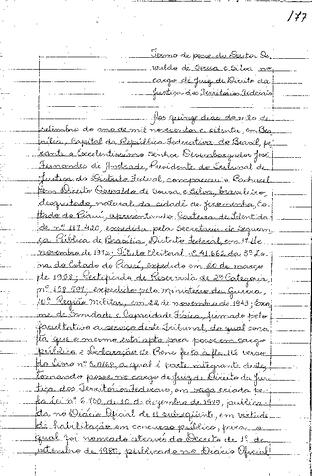 177
Termo de posse do Doutor Os-
valdo de Sousa e Silva no
cargo de Juiz de Direito da
Justiça dos Territórios Federais
Aos quinze dias do mês de
setembro do ano de mil novecentos e oitenta, em Bra-
sília, Capital da República Federativa do Brasil, pe-
rante o Excelentíssimo Senhor Desembargador José
Fernandes de Andrade, Presidente do Tribunal de
Justiça do Distrito Federal, compareceu o Bacharel
em Direito Osvaldo de Sousa e Silva, brasileiro,
desquitado, natural da cidade de Jerumenha, Es-
tado do Piauí, apresentando Carteira de Identida-
de nº 117.420, expedida pela Secretaria de Seguran-
ça Pública de Brasília, Distrito Federal, em de
novembro de Título Eleitoral nº 41.662 da 3ª Zo-
na do Estado do Piauí, expedido em 20 de março
de Certificado de Reservista de 2ª Categoria
nº expedido pelo Ministério da Guerra,
10ª Região Militar, em 22 de novembro de 1943; Exa-
me de Sanidade e Capacidade Física, firmado pelo
facultativo a serviço deste Tribunal, do qual cons-
ta que o mesmo está apto para posse em cargo
público e Declaração de Bens feita à fls. verso
do Livro nº a qual é parte integrante deste,
tomando posse no cargo de Juiz de Direito da Jus-
tiça dos Territórios Federais, em vaga criada pe-
la Lei nº de 10 de dezembro de 1979, publica-
da no Diário Oficial de 11 subseqüente, em virtude
de habilitação em concurso público, para o
qual foi nomeado através do Decreto de 1º de
setembro de 1980, publicado no Diário Oficial